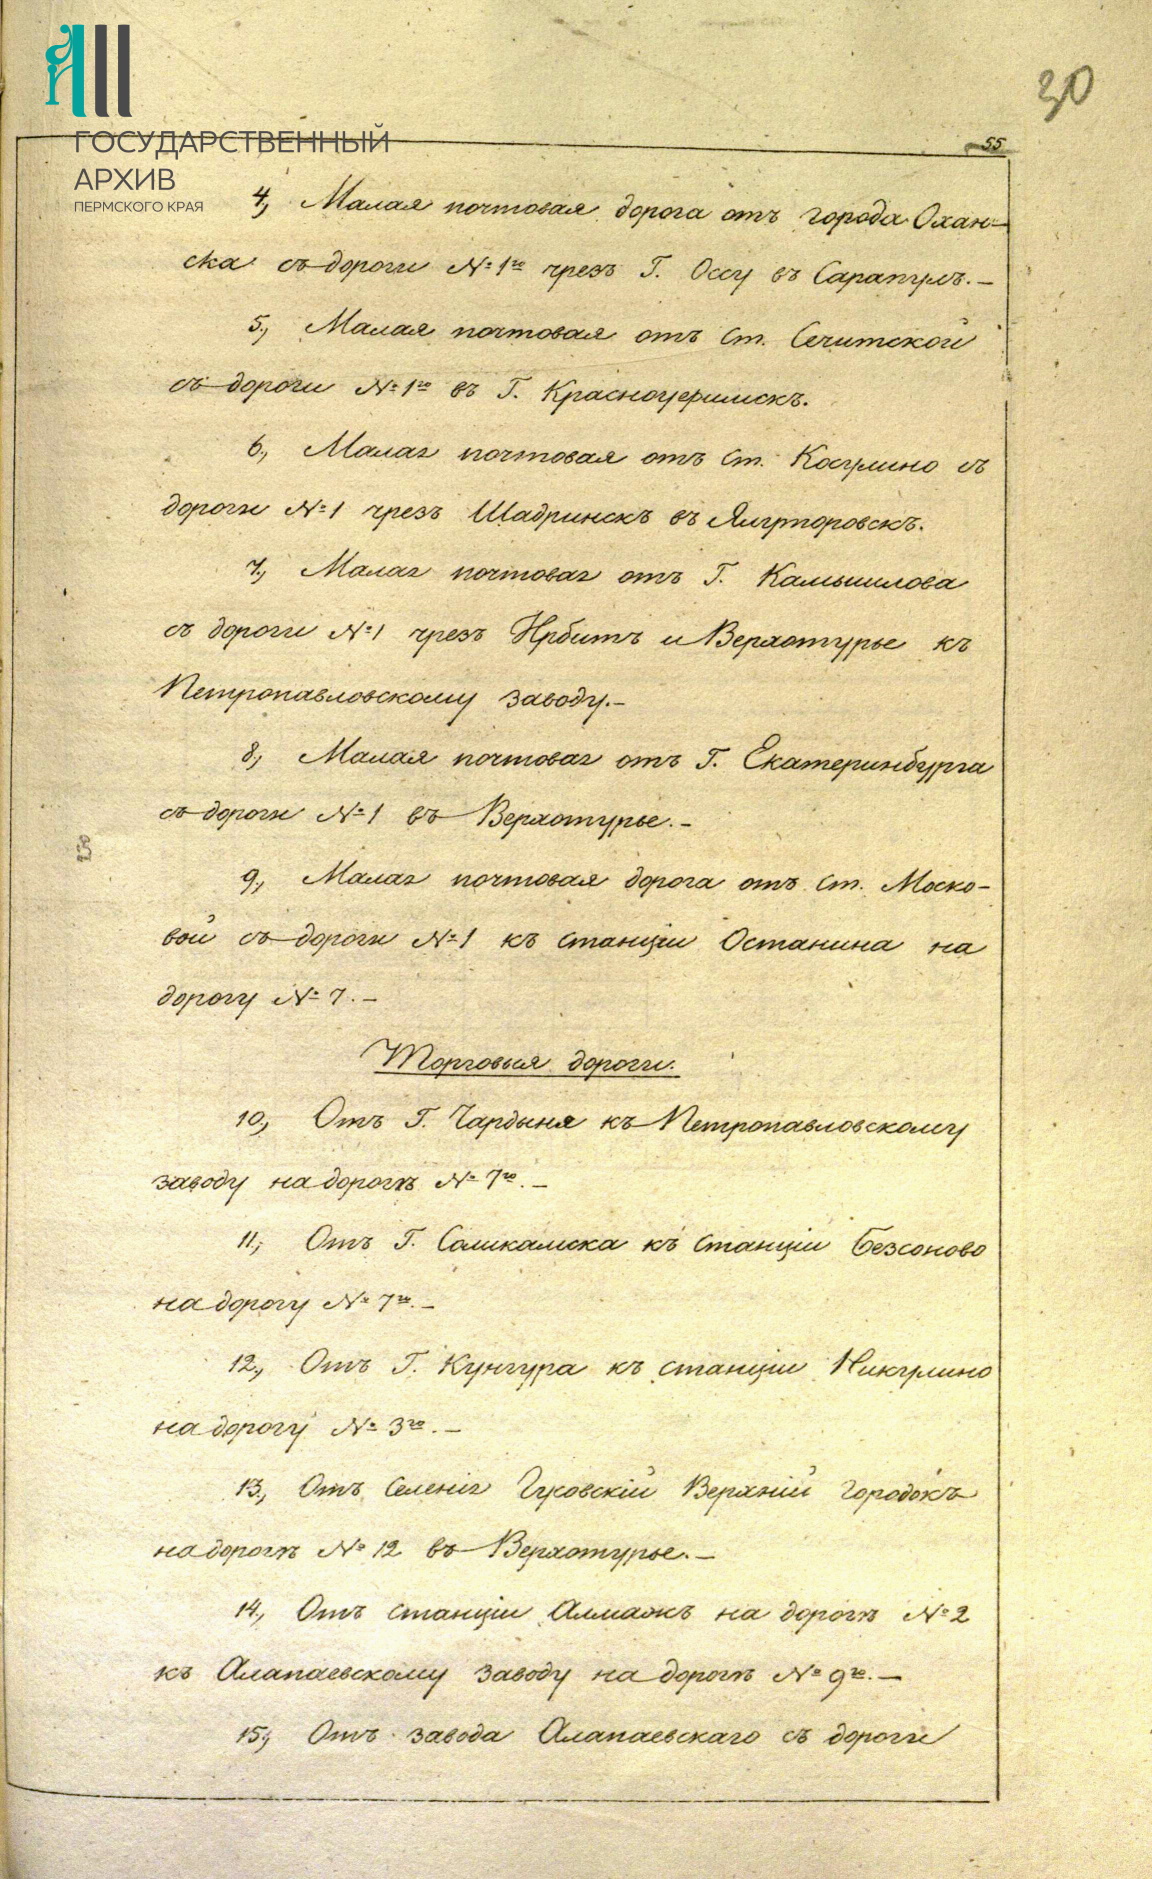 30
ГОСУДАРСТВЕННЫЙ
АРХИВ
ПЕРМСКОГО КРАЯ
55
4., Малая почтовая дорога отъ города Охан=
ска съ дороги №1го чрезъ Г. Оссу въ Сарапулъ.—
5., Малая почтовая отъ Ст. Сечитской
съ дороги №1го въ Г. Красноуфимскъ.
6., Малая почтовая отъ Ст. Косулино съ
дороги №1 чрезъ Шадринскъ въ Ялуторовскъ.
7., Малая почтовая отъ Г. Камышлова
съ дороги №1 чрезъ Ирбитъ и Верхотурье къ
Петропавловскому заводу.—
8., Малая почтовая отъ Г. Екатеринбурга
съ дороги №1 въ Верхотурье.—
9., Малая почтовая дорога отъ Ст. Моско-
вой съ дороги №1 къ станціи Останина на
дорогу № 7.—
Торговыя дороги.
10., Отъ Г. Чардыня къ Петропавловскому
заводу на дорогѣ № 7го.—
11., Отъ Г. Соликамска къ станціи Безсоново
на дорогу № 7го.—
12., Отъ Г. Кунгура къ станціи Никулино
на дорогу № 3го.—
13., Отъ Селенія Верхній Городокъ
на дорогѣ № 12 въ Верхотурье.—
14., Отъ станціи Алмажъ на дорогѣ №2
къ Алапаевскому заводу на дорогѣ № 9го.—
15., Отъ завода Алапаевскаго съ дороги